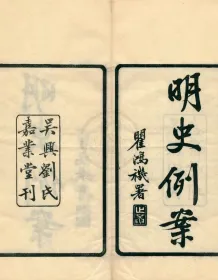 明史例案
瞿鴻禨署
吳興劉氏
嘉業堂刊